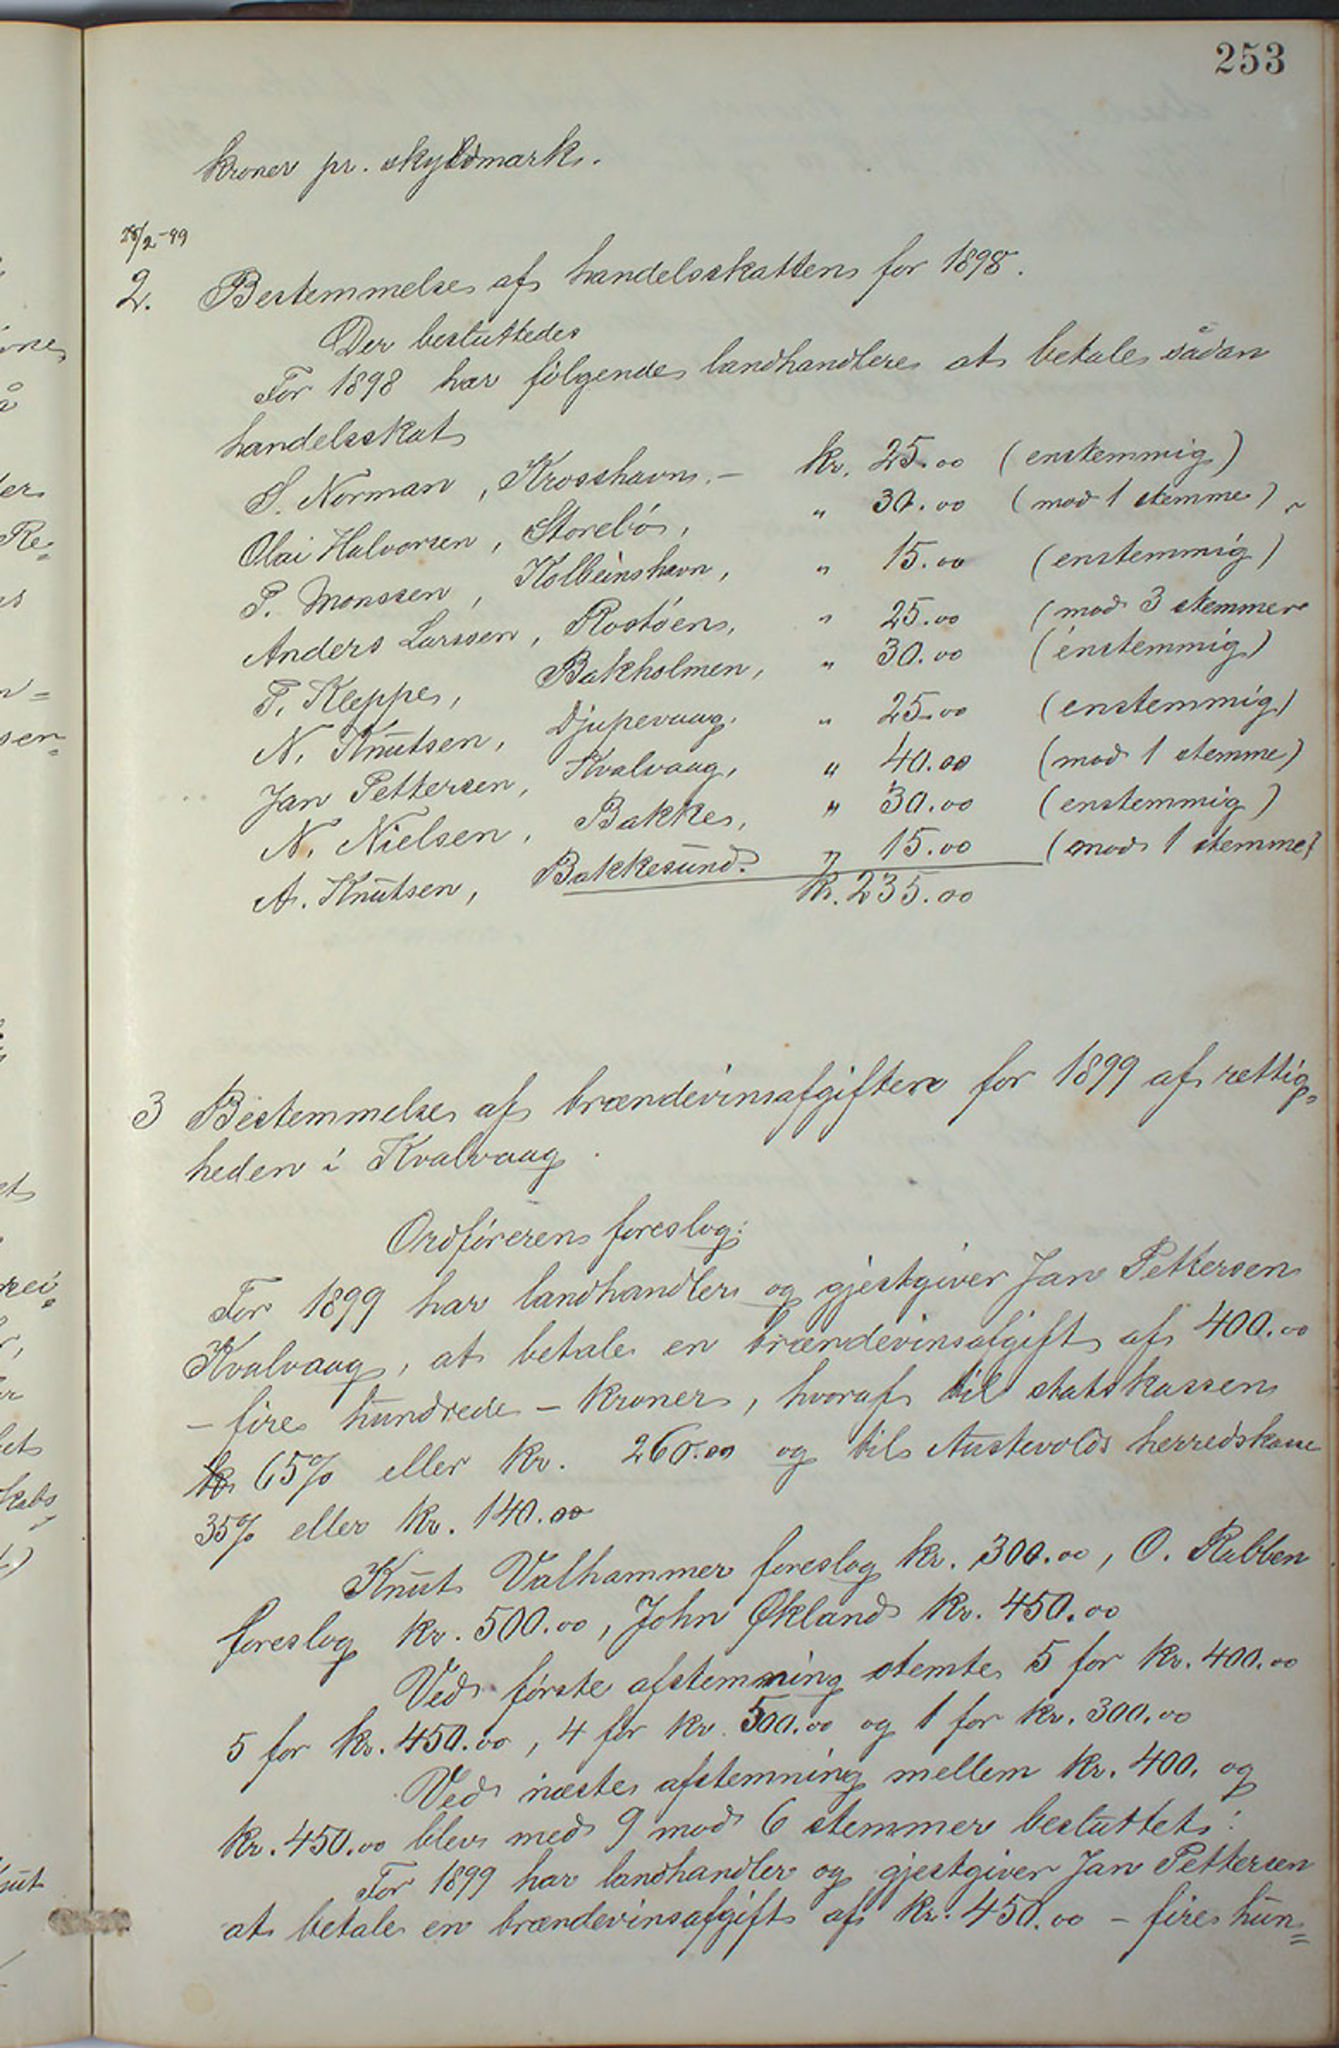 253
kroner pr. skyldmark.
25/2-99
2. Bestemmelse af handelsskatten for 1898.
Der besluttedes
For 1898 har følgende landhandlere at betale sådan
handelsskat
S. Norman, Krosshavn. - kr. 25.00 (enstemmig)
Olai Halvorsen, Storebø, " 30.00 (mod 1 stemme)
P. Monssen, Kolbeinshavn, " 15.00 (enstemmig)
Anders Larssen, Rostøen, " 25.00 (mod 3 stemmer
T. Kleppe, Bakholmen, " 30.00 (enstemmig)
N. Knutsen, Djupevaag. " 25.00 (enstemmig)
Jan Pettersen, Kvalvaag, " 40.00 (mod 1 stemme)
N. Nielsen, Bakke, " 30.00 (enstemmig)
A. Knutsen, Bakkesund. " 15.00 (mod 1 stemme)
kr. 235.00
3 Bestemmelse af brændevinsafgiften for 1899 af rettig=
heden i Kvalvaag.
Ordføreren foreslog:
For 1899 har landhandler og gjestgiver Jan Pettersen
Kvalvaag, at betale en brændevinsafgift af 400.00
- fire hundrede - kroner, hvoraf til statskassen
65% eller kr. 260.00 og til Austevolds herredskasse
35% eller kr. 140.00
Knut Valhammer foreslog kr. 300.00, O. Rabben
foreslog kr. 500.00, John Økland kr. 450.00
Ved første afstemning stemte 5 for kr. 400.00
5 for kr. 450.00, 4 for kr. 500.00 og 1 for kr. 300.00
Ved næste afstemning mellem kr. 400. og
kr. 450.00 blev med 9 mod 6 stemmer besluttet:
For 1899 har landhandler og gjestgiver Jan Pettersen
at betale en brændevinsafgift af kr. 450.00 - fire hun=